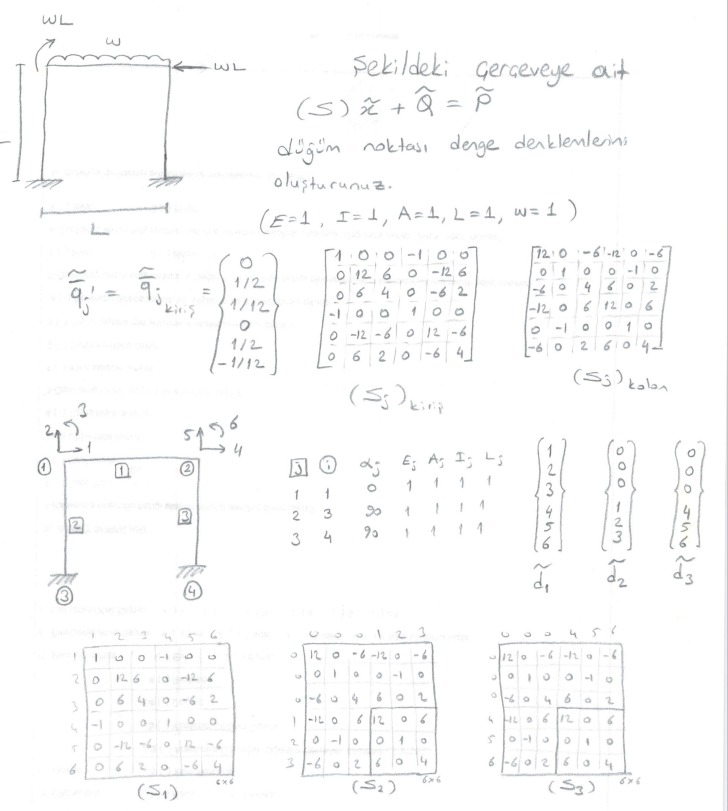 WL
w
WL
L
Şekildeki çerçeveye ait
(S) x̃ + Q̃ = P̃
düğüm noktası denge denklemlerini
oluşturunuz.
(E=1, I=1, A=1, L=1, w=1)
q̃j' = q̃j kiriş =
0
1/2
1/12
0
1/2
-1/12
1 0 0 -1 0 0
0 12 6 0 -12 6
0 6 4 0 -6 2
-1 0 0 1 0 0
0 -12 -6 0 12 -6
0 6 2 0 -6 4
(Sj) kiriş
12 0 -6 -12 0 -6
0 1 0 0 -1 0
-6 0 4 6 0 2
-12 0 6 12 0 6
0 -1 0 0 1 0
-6 0 2 6 0 4
(Sj) kolon
3
2
1
6
5
4
1
1
2
2
3
3
4
j i αj Ej Aj Ij Lj
1 1 0 1 1 1 1
2 3 90 1 1 1 1
3 4 90 1 1 1 1
1
2
3
4
5
6
d̃1
0
0
0
1
2
3
d̃2
0
0
0
4
5
6
d̃3
1 2 3 4 5 6
1 1 0 0 -1 0 0
2 0 12 6 0 -12 6
3 0 6 4 0 -6 2
4 -1 0 0 1 0 0
5 0 -12 -6 0 12 -6
6 0 6 2 0 -6 4
6x6
(S1)
0 0 0 1 2 3
0 12 0 -6 -12 0 -6
0 0 1 0 0 -1 0
0 -6 0 4 6 0 2
1 -12 0 6 12 0 6
2 0 -1 0 0 1 0
3 -6 0 2 6 0 4
6x6
(S2)
0 0 0 4 5 6
0 12 0 -6 -12 0 -6
0 0 1 0 0 -1 0
0 -6 0 4 6 0 2
4 -12 0 6 12 0 6
5 0 -1 0 0 1 0
6 -6 0 2 6 0 4
6x6
(S3)